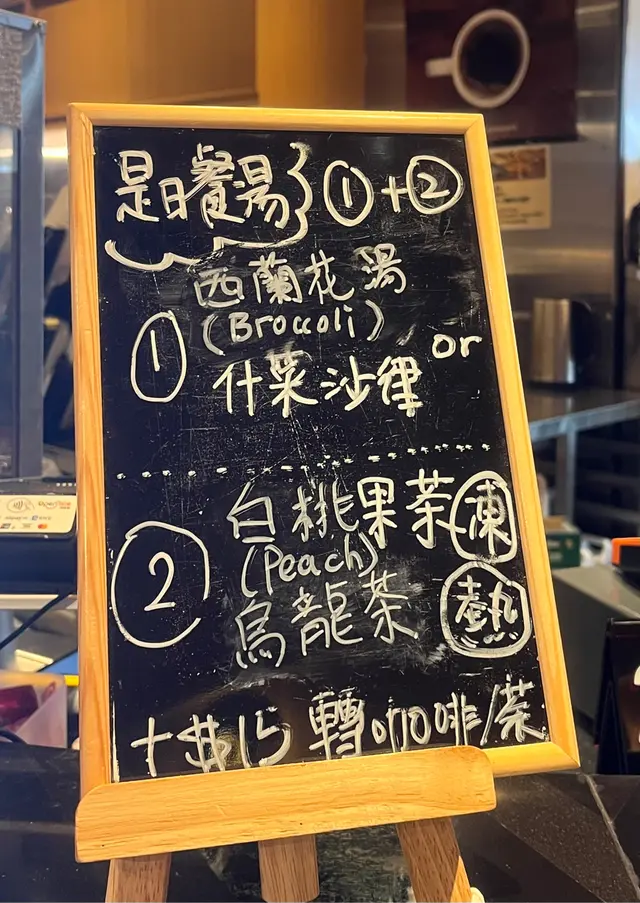 是日餐湯 ①+②
西蘭花湯
(Broccoli)
① or
什菜沙律
白桃果茶 凍
(Peach)
②
烏龍茶 熱
+$15 轉咖啡/茶